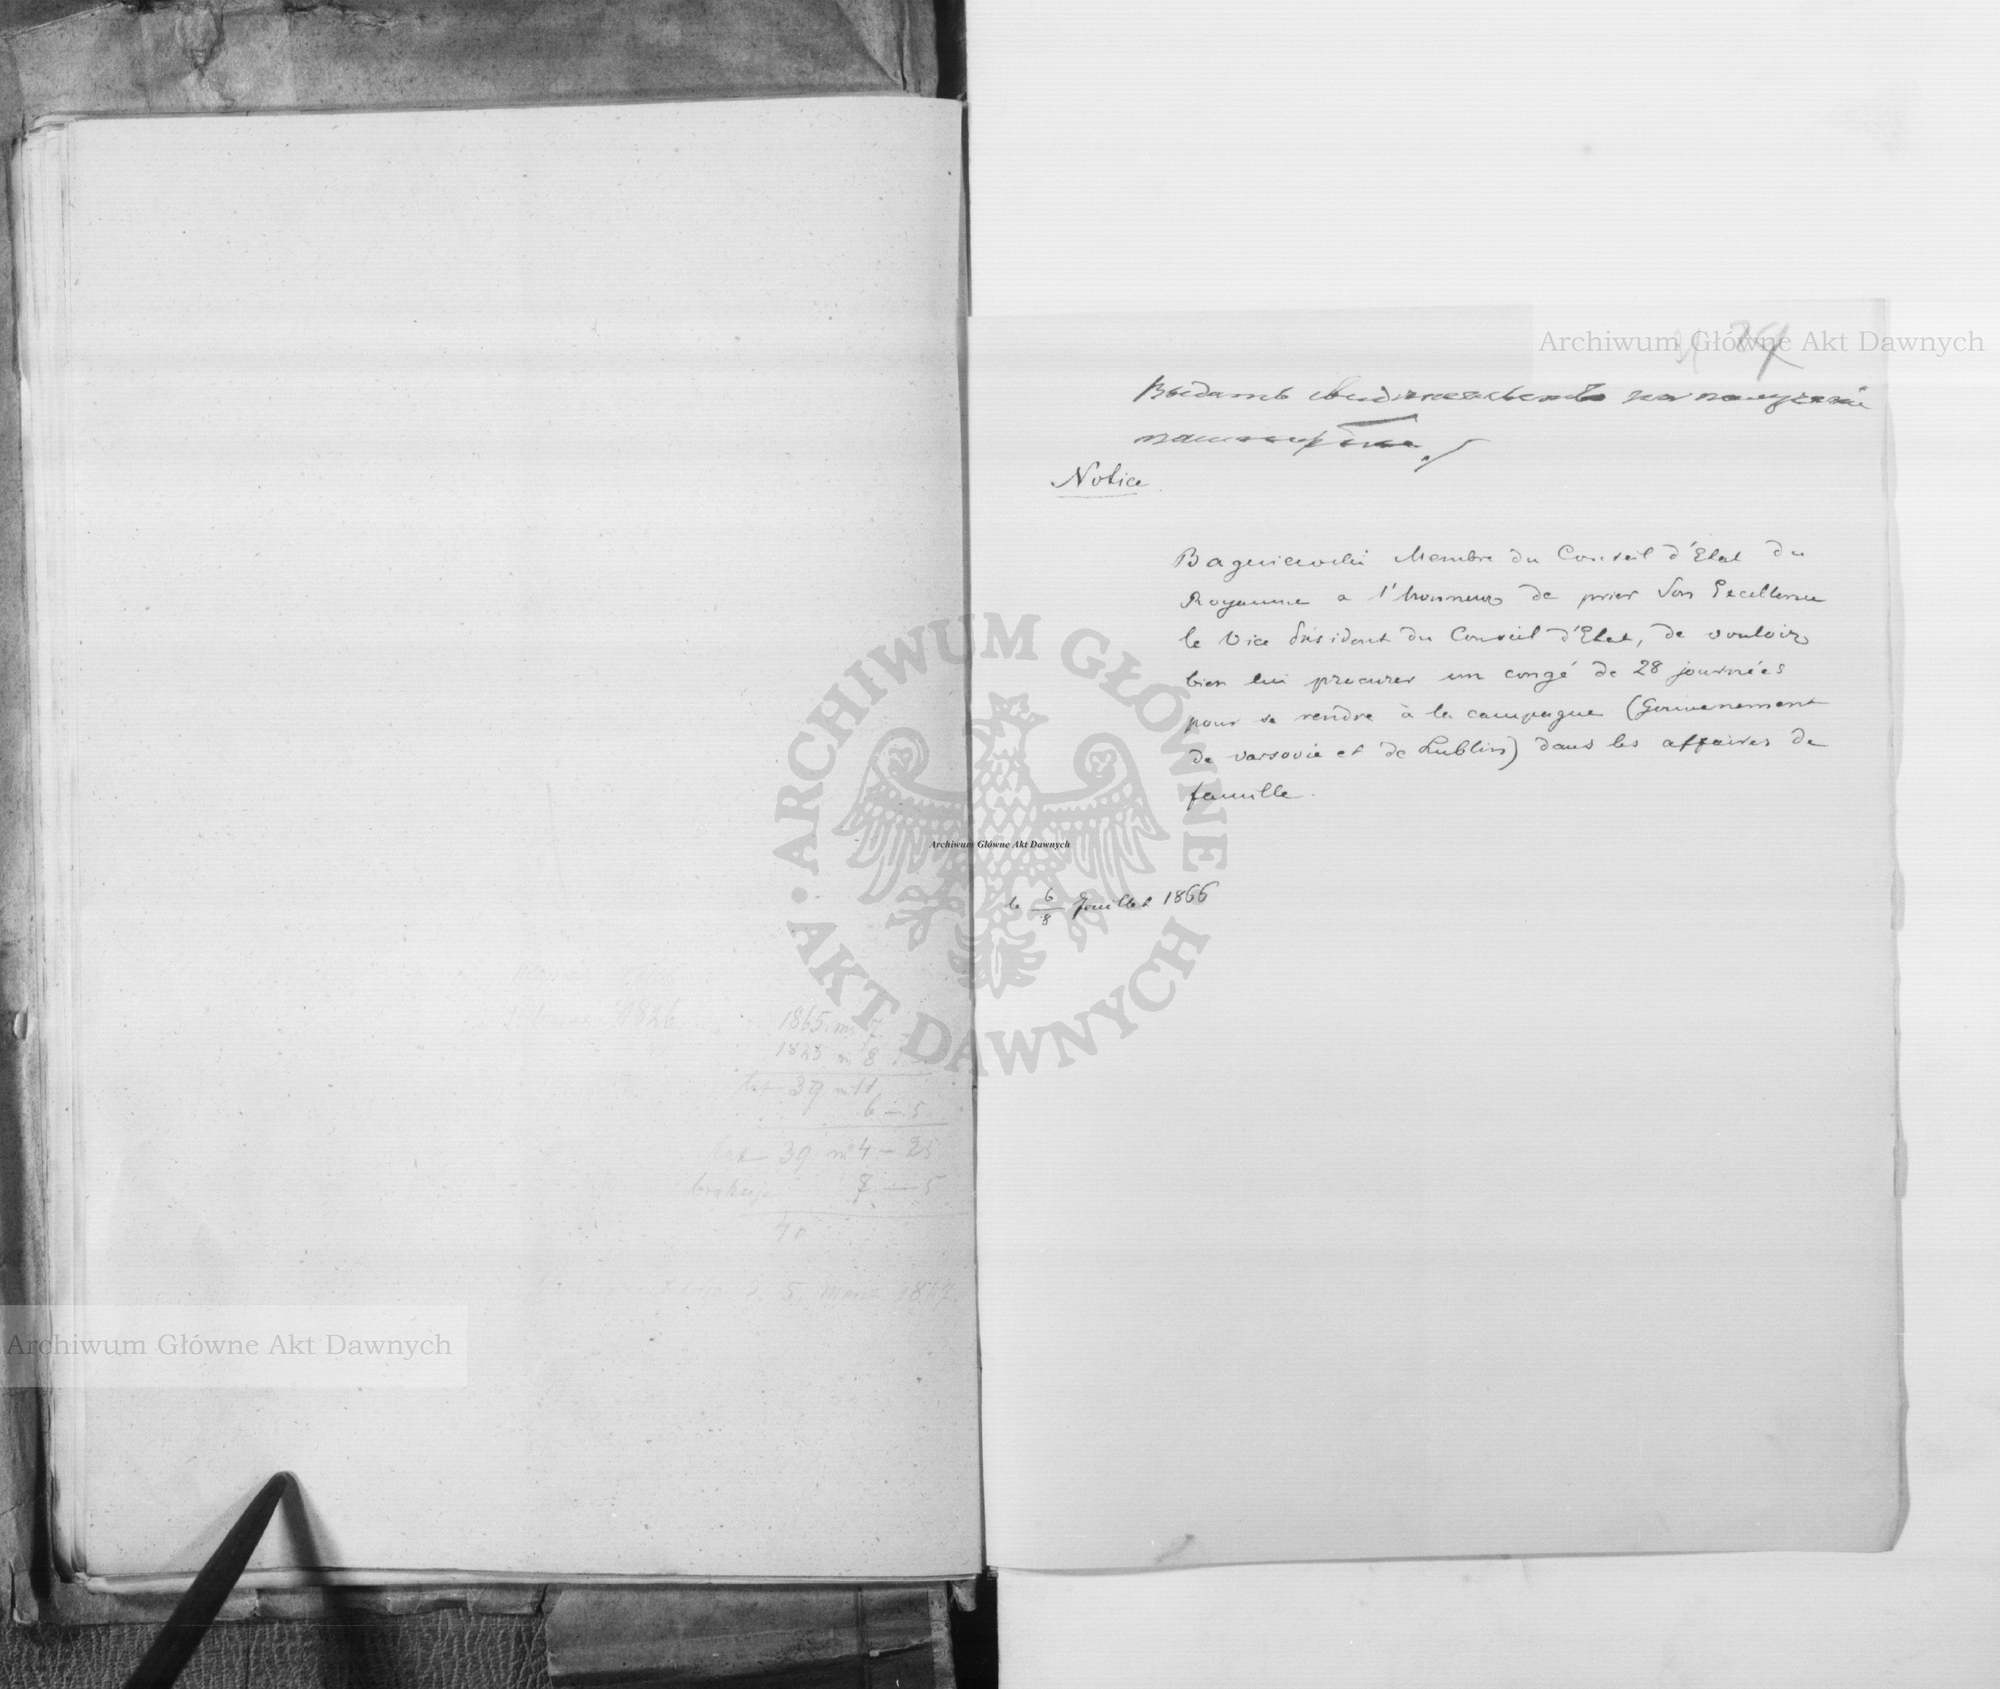 1826
1865 m 7
1823 m 8
lat 39 m 11
6 — 5
lat 39 m 4 — 25
brakuje 7 — 5
40
5
Archiwum Główne Akt Dawnych
Archiwum Główne Akt Dawnych
ARCHIWUM GŁÓWNE AKT DAWNYCH
Archiwum Główne Akt Dawnych
Выдать свидетельство на получение
паспорта
Notice
Bagniewski Membre du Conseil d'Etat du
Royaume a l'honneur de prier Son Excellence
le Vice Président du Conseil d'Etat, de vouloir
bien lui procurer un congé de 28 journées
pour se rendre à la campagne (Gouvernement
de varsovie et de Lublin) dans les affaires de
famille.
le 6/8 Jouillet 1866